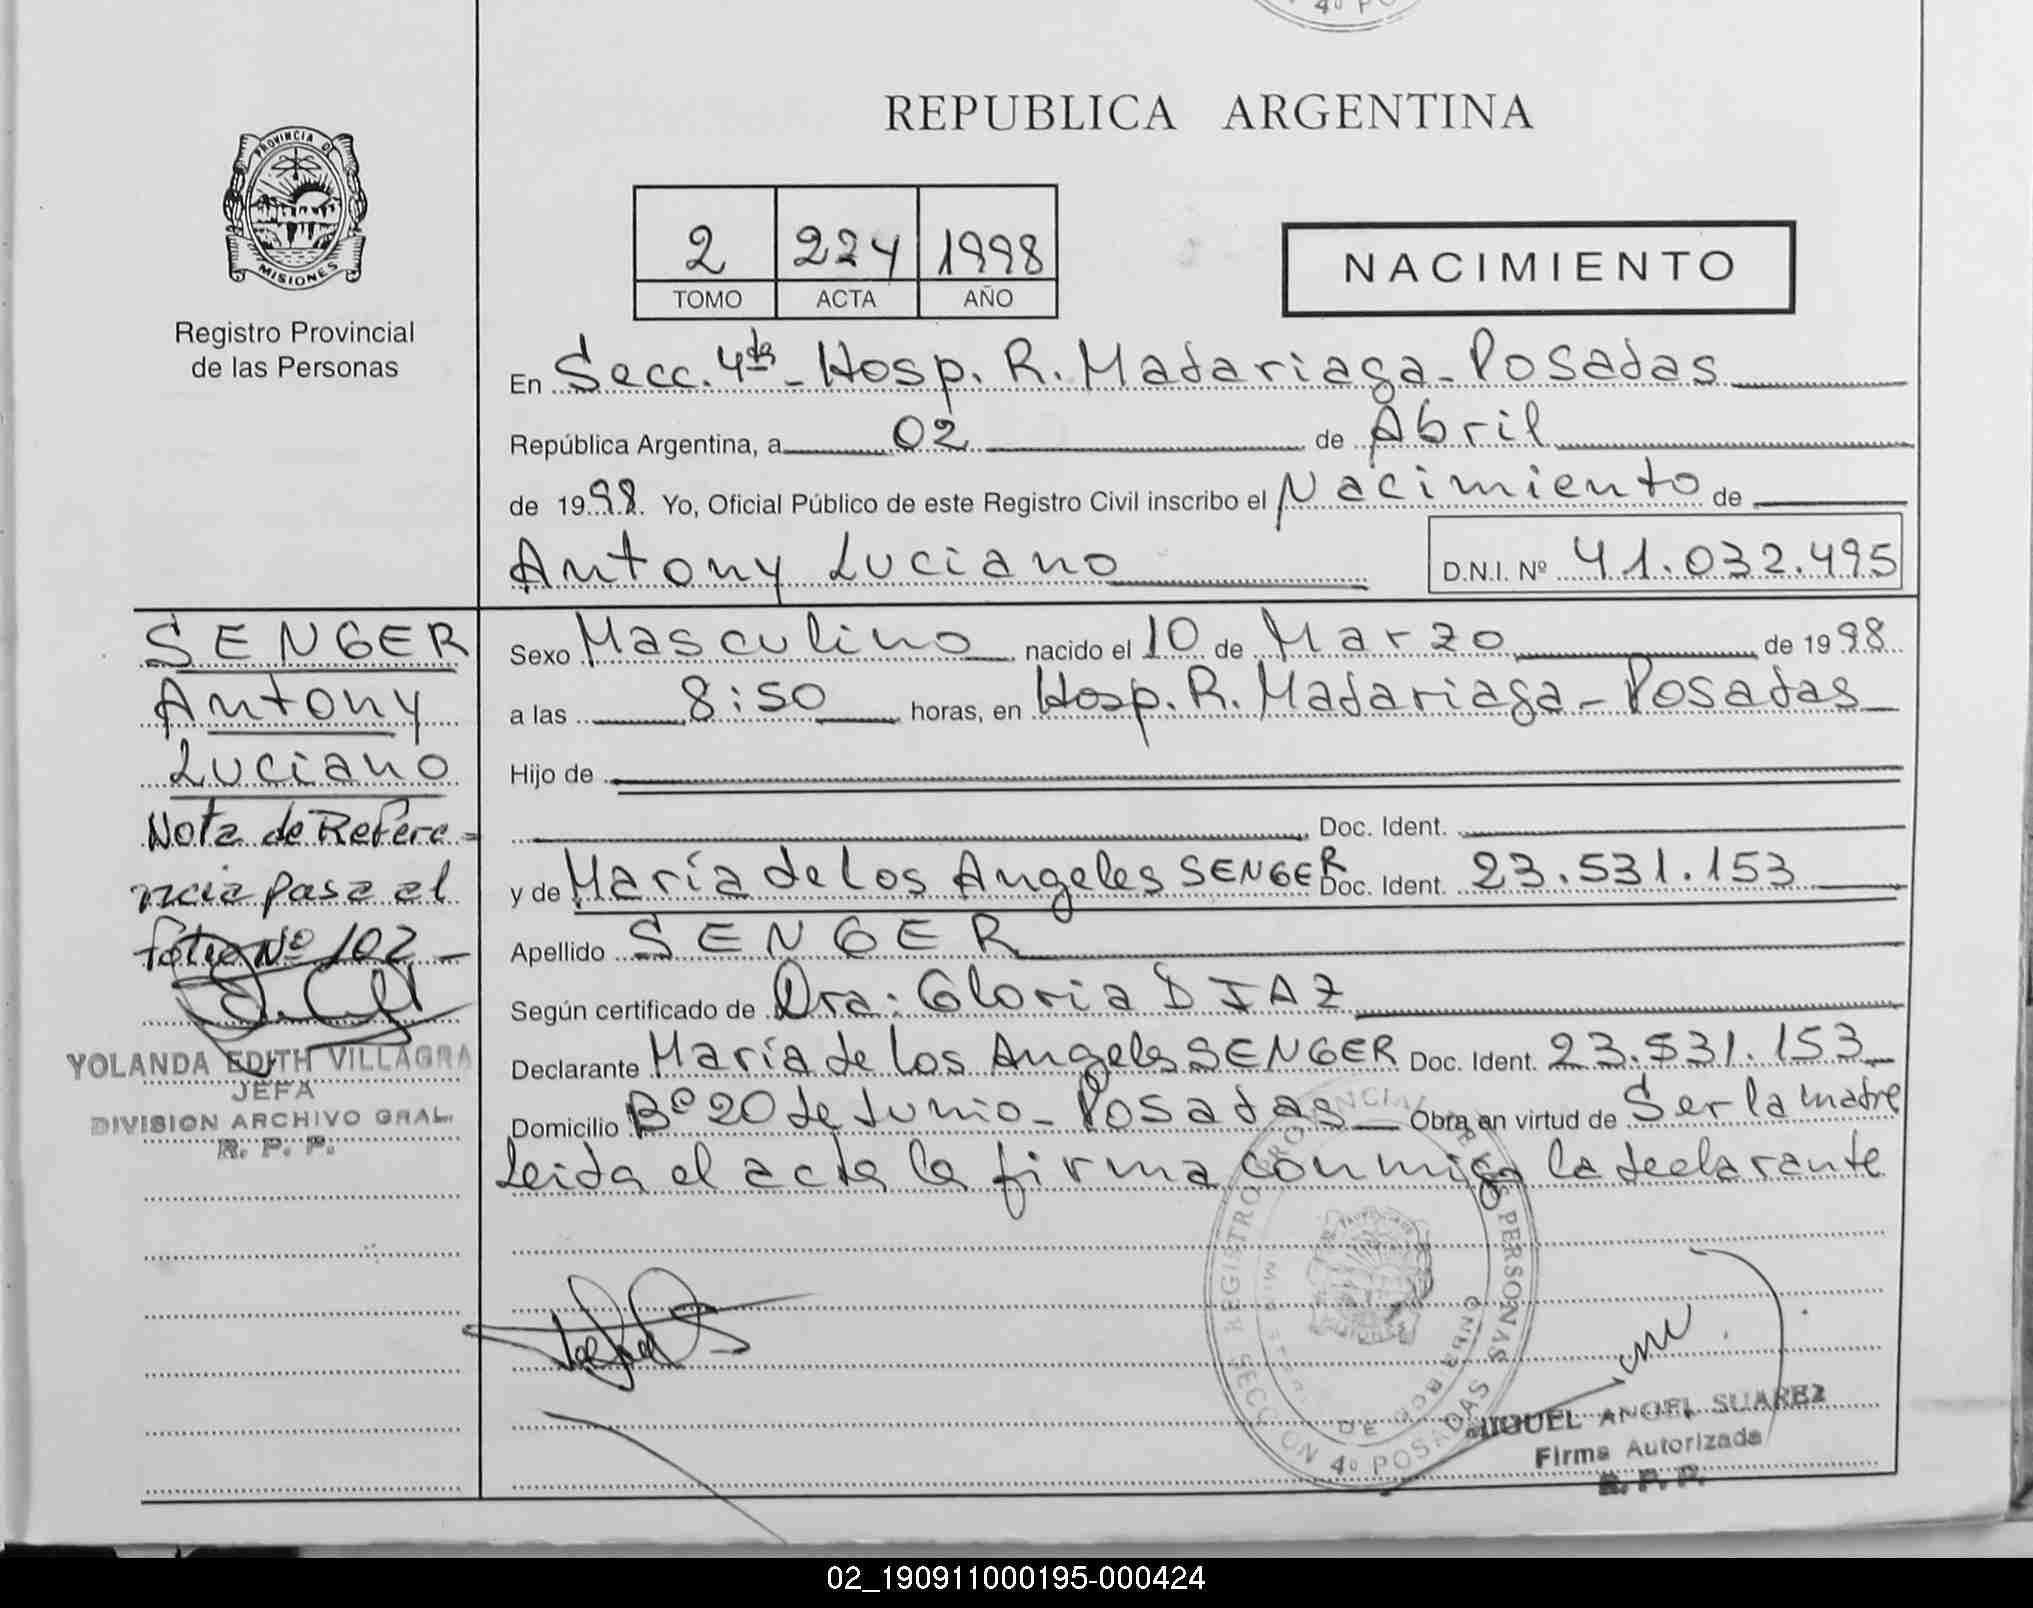 4º PO
REPUBLICA ARGENTINA
PROVINCIA DE
MISIONES
Registro Provincial
de las Personas
2 224 1998
TOMO ACTA AÑO
NACIMIENTO
En Secc. 4ta - Hosp. R. Madariaga - Posadas
República Argentina, a 02 de Abril
de 1998. Yo, Oficial Público de este Registro Civil inscribo el Nacimiento de
Antony Luciano D.N.I. Nº 41.032.495
SENGER
Antony
Luciano
Nota de Refere-
ncia pasa al
folio Nº 102 -
YOLANDA EDITH VILLAGRA
JEFA
DIVISION ARCHIVO GRAL.
R. P. P.
Sexo Masculino nacido el 10 de Marzo de 1998
a las 8:50 horas, en Hosp. R. Madariaga - Posadas
Hijo de
Doc. Ident.
y de María de los Angeles SENGER Doc. Ident. 23.531.153
Apellido SENGER
Según certificado de Dra: Gloria DIAZ
Declarante María de los Angeles SENGER Doc. Ident. 23.531.153
Domicilio Bº 20 de Junio - Posadas Obra en virtud de Ser la madre
Leida el acta la firma conmigo la declarante
SECCION 4º POSADAS
MIGUEL ANGEL SUAREZ
Firma Autorizada
R. P. P.
02_190911000195-000424